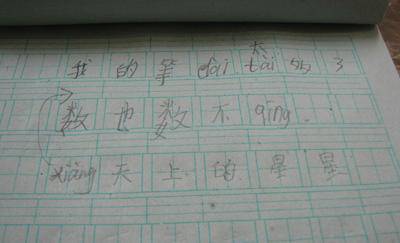 我的笔dài太tài多了
数也数不qīng.
xiàng天上的星星